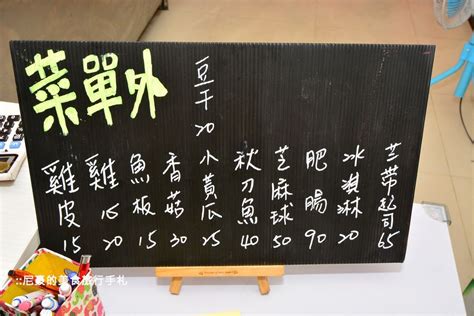 菜單外
豆干20
雞皮15
雞 20
魚板15
香菇30
小黃瓜25
秋刀魚40
芝麻球50
肥腸90
冰淇淋20
起司65
::尼豪的美食旅行手札